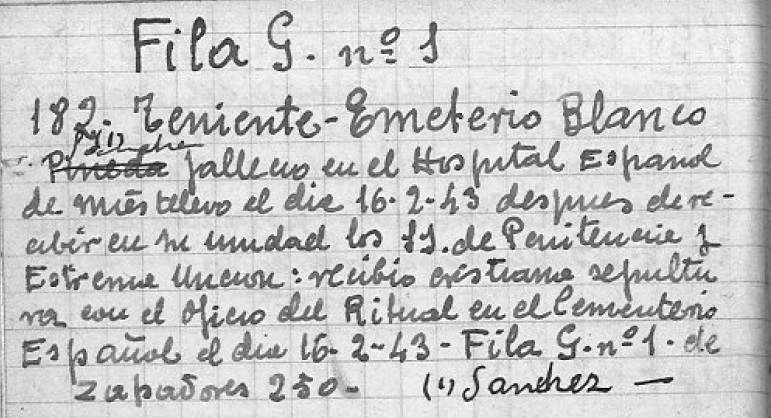 Fila G. nº 1
182. Teniente - Emeterio Blanco
(1) Sanchez
Pineda fallecio en el Hospital Español
de Miestelevo el dia 16-2-43 despues de re-
cibir en su unidad los SS. de Penitencia y
Extrema Uncion: recibio cristiana sepultu
ra con el Oficio del Ritual en el Cementerio
Español el dia 16-2-43 - Fila G. nº 1. de
Zapadores 250 - (1) Sanchez —